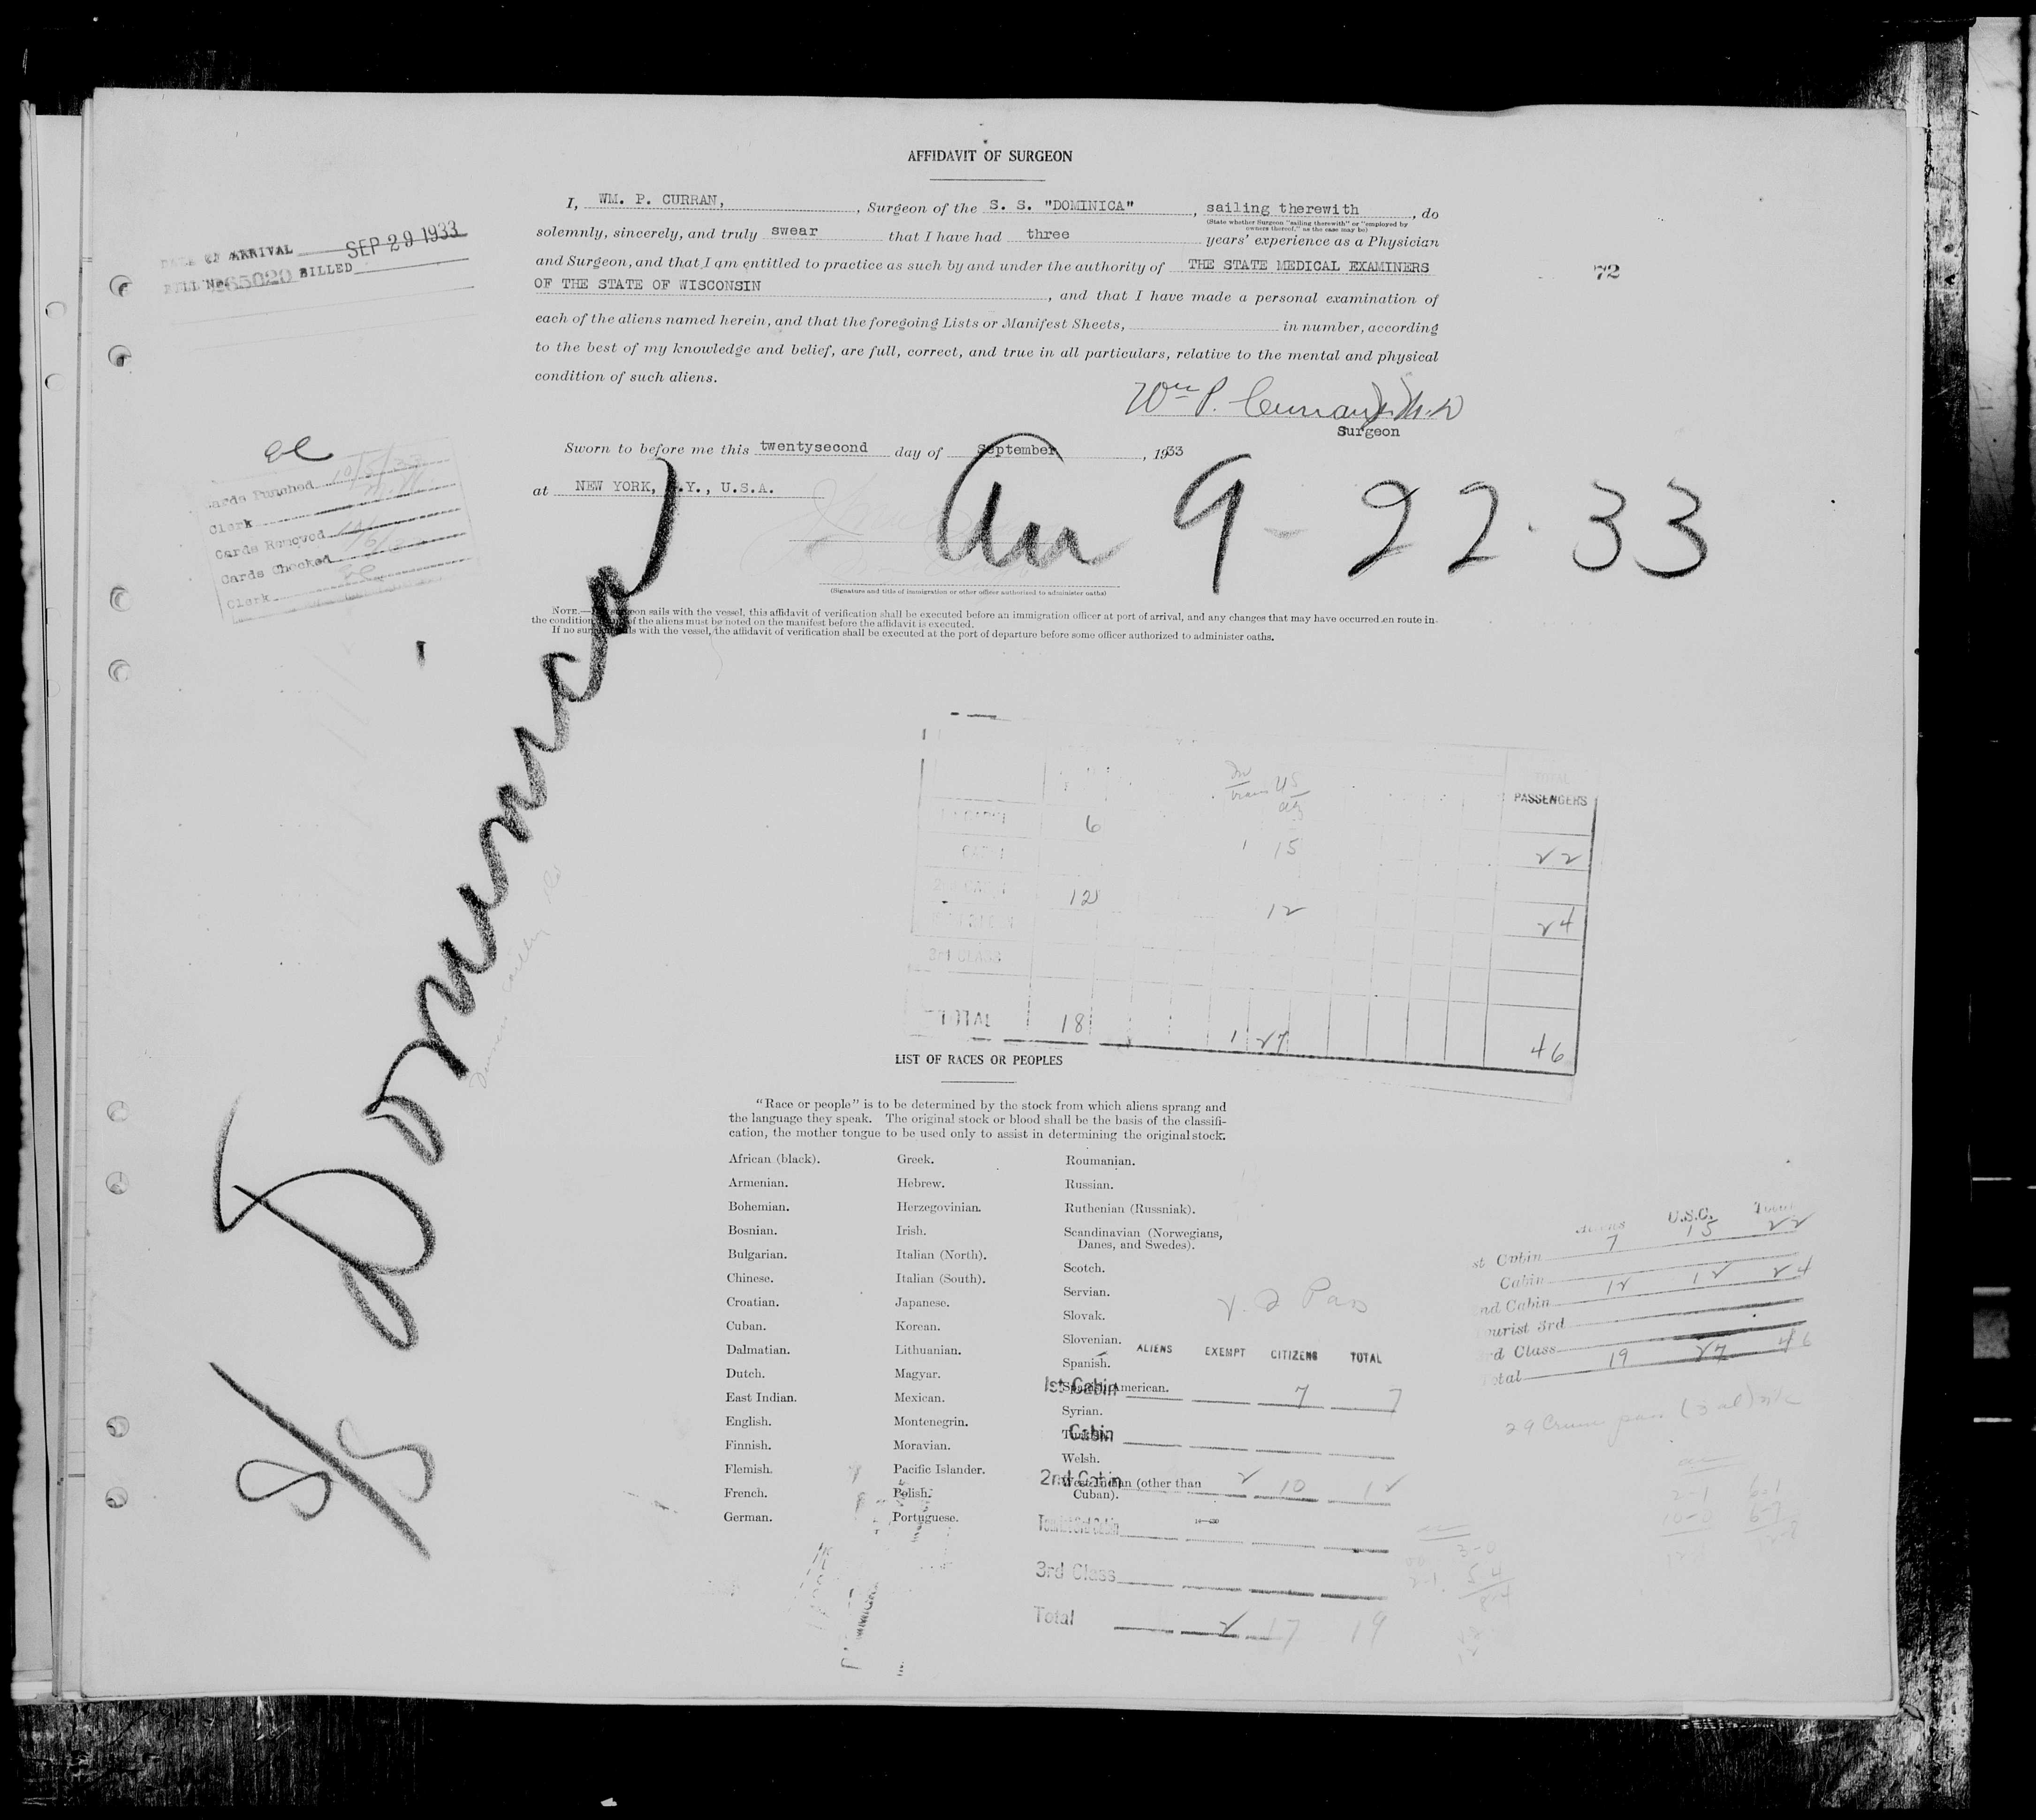 AFFIDAVIT OF SURGEON
I, WM. P. CURRAN, , Surgeon of the S. S. "DOMINICA" , sailing therewith , do
(State whether Surgeon "sailing therewith" or "employed by
owners thereof," as the case may be)
solemnly, sincerely, and truly swear that I have had three years' experience as a Physician
and Surgeon, and that I am entitled to practice as such by and under the authority of THE STATE MEDICAL EXAMINERS
OF THE STATE OF WISCONSIN , and that I have made a personal examination of
each of the aliens named herein, and that the foregoing Lists or Manifest Sheets, in number, according
to the best of my knowledge and belief, are full, correct, and true in all particulars, relative to the mental and physical
condition of such aliens.
Wm P. Curran Jr M.D
Surgeon
Sworn to before me this twentysecond day of September , 1933
at NEW YORK, N.Y., U.S.A.
(Signature and title of immigration or other officer authorized to administer oaths)
NOTE.—If surgeon sails with the vessel, this affidavit of verification shall be executed before an immigration officer at port of arrival, and any changes that may have occurred en route in
the condition of the aliens must be noted on the manifest before the affidavit is executed.
If no surgeon sails with the vessel, the affidavit of verification shall be executed at the port of departure before some officer authorized to administer oaths.
DATE OF ARRIVAL SEP 29 1933
BILL No. 265020 BILLED
72
Cards Punched 10/5/33
Clerk M.H.
Cards Removed
Cards Checked 10/6/3
Clerk
Arr 9-22-33
S/S Dominica
TOTAL
PASSENGERS
In trans US
6 1 15 22
12 12 24
3rd CLASS
TOTAL 18 1 27 46
LIST OF RACES OR PEOPLES
"Race or people" is to be determined by the stock from which aliens sprang and
the language they speak. The original stock or blood shall be the basis of the classifi-
cation, the mother tongue to be used only to assist in determining the original stock.
African (black).
Armenian.
Bohemian.
Bosnian.
Bulgarian.
Chinese.
Croatian.
Cuban.
Dalmatian.
Dutch.
East Indian.
English.
Finnish.
Flemish.
French.
German.
Greek.
Hebrew.
Herzegovinian.
Irish.
Italian (North).
Italian (South).
Japanese.
Korean.
Lithuanian.
Magyar.
Mexican.
Montenegrin.
Moravian.
Pacific Islander.
Polish.
Portuguese.
Roumanian.
Russian.
Ruthenian (Russniak).
Scandinavian (Norwegians,
Danes, and Swedes).
Scotch.
Servian.
Slovak.
Slovenian.
Spanish.
Spanish American.
Syrian.
Turkish.
Welsh.
West Indian (other than
Cuban).
Aliens U.S.C. Total
st Cabin 7 15 22
Cabin
nd Cabin 12 12 24
ourist 3rd
rd Class
Total 19 27 46
ALIENS EXEMPT CITIZENS TOTAL
1st Cabin 7 7
Cabin
2nd Cabin 2 10 12
Tourist 3rd Cabin
3rd Class
Total 2 17 19